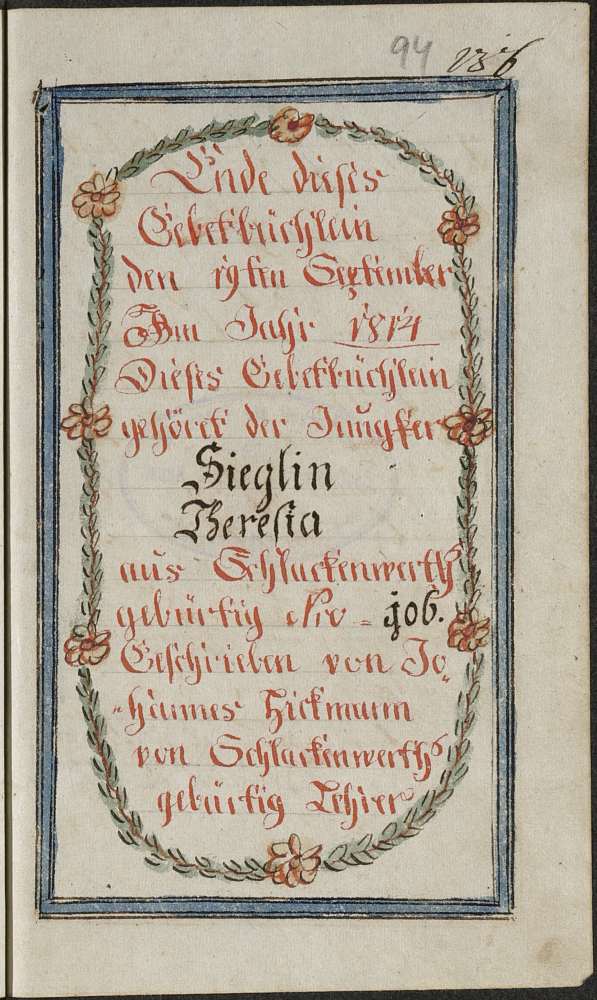 94
136
Ende dieses
Gebetbüchlein
den 19ten September
Im Jahr 1814
Dieses Gebetbüchlein
gehöret der Jungfer
Sieglin
Theresia
aus Schlackenwerth
gebürtig Nro = 106.
Geschrieben von Jo„
„hannes Hickmann
von Schlackenwerth
gebürtig Lehrer